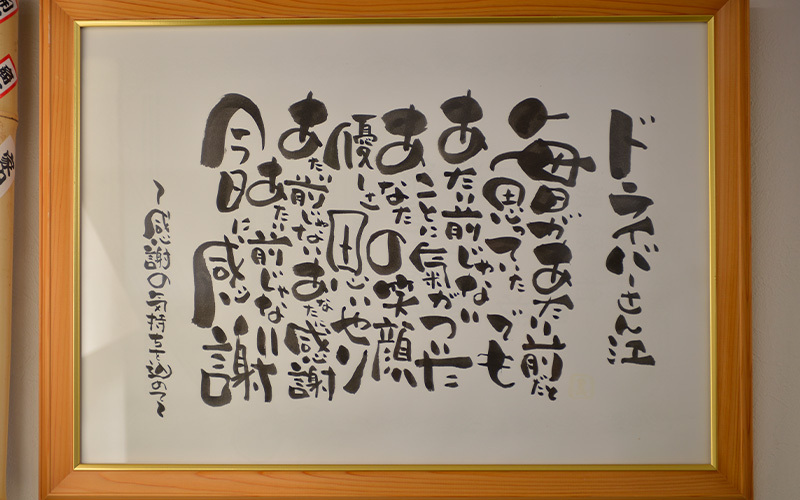 ドライバーさん江
毎日があたり前だと
思っていた でも
あたり前じゃない
ことに気がついた
あなたの笑顔
優しさ 思いやり
あたり前じゃない あなたに感謝
あたり前じゃない
今日に感謝
〜感謝の気持ちを込めて〜